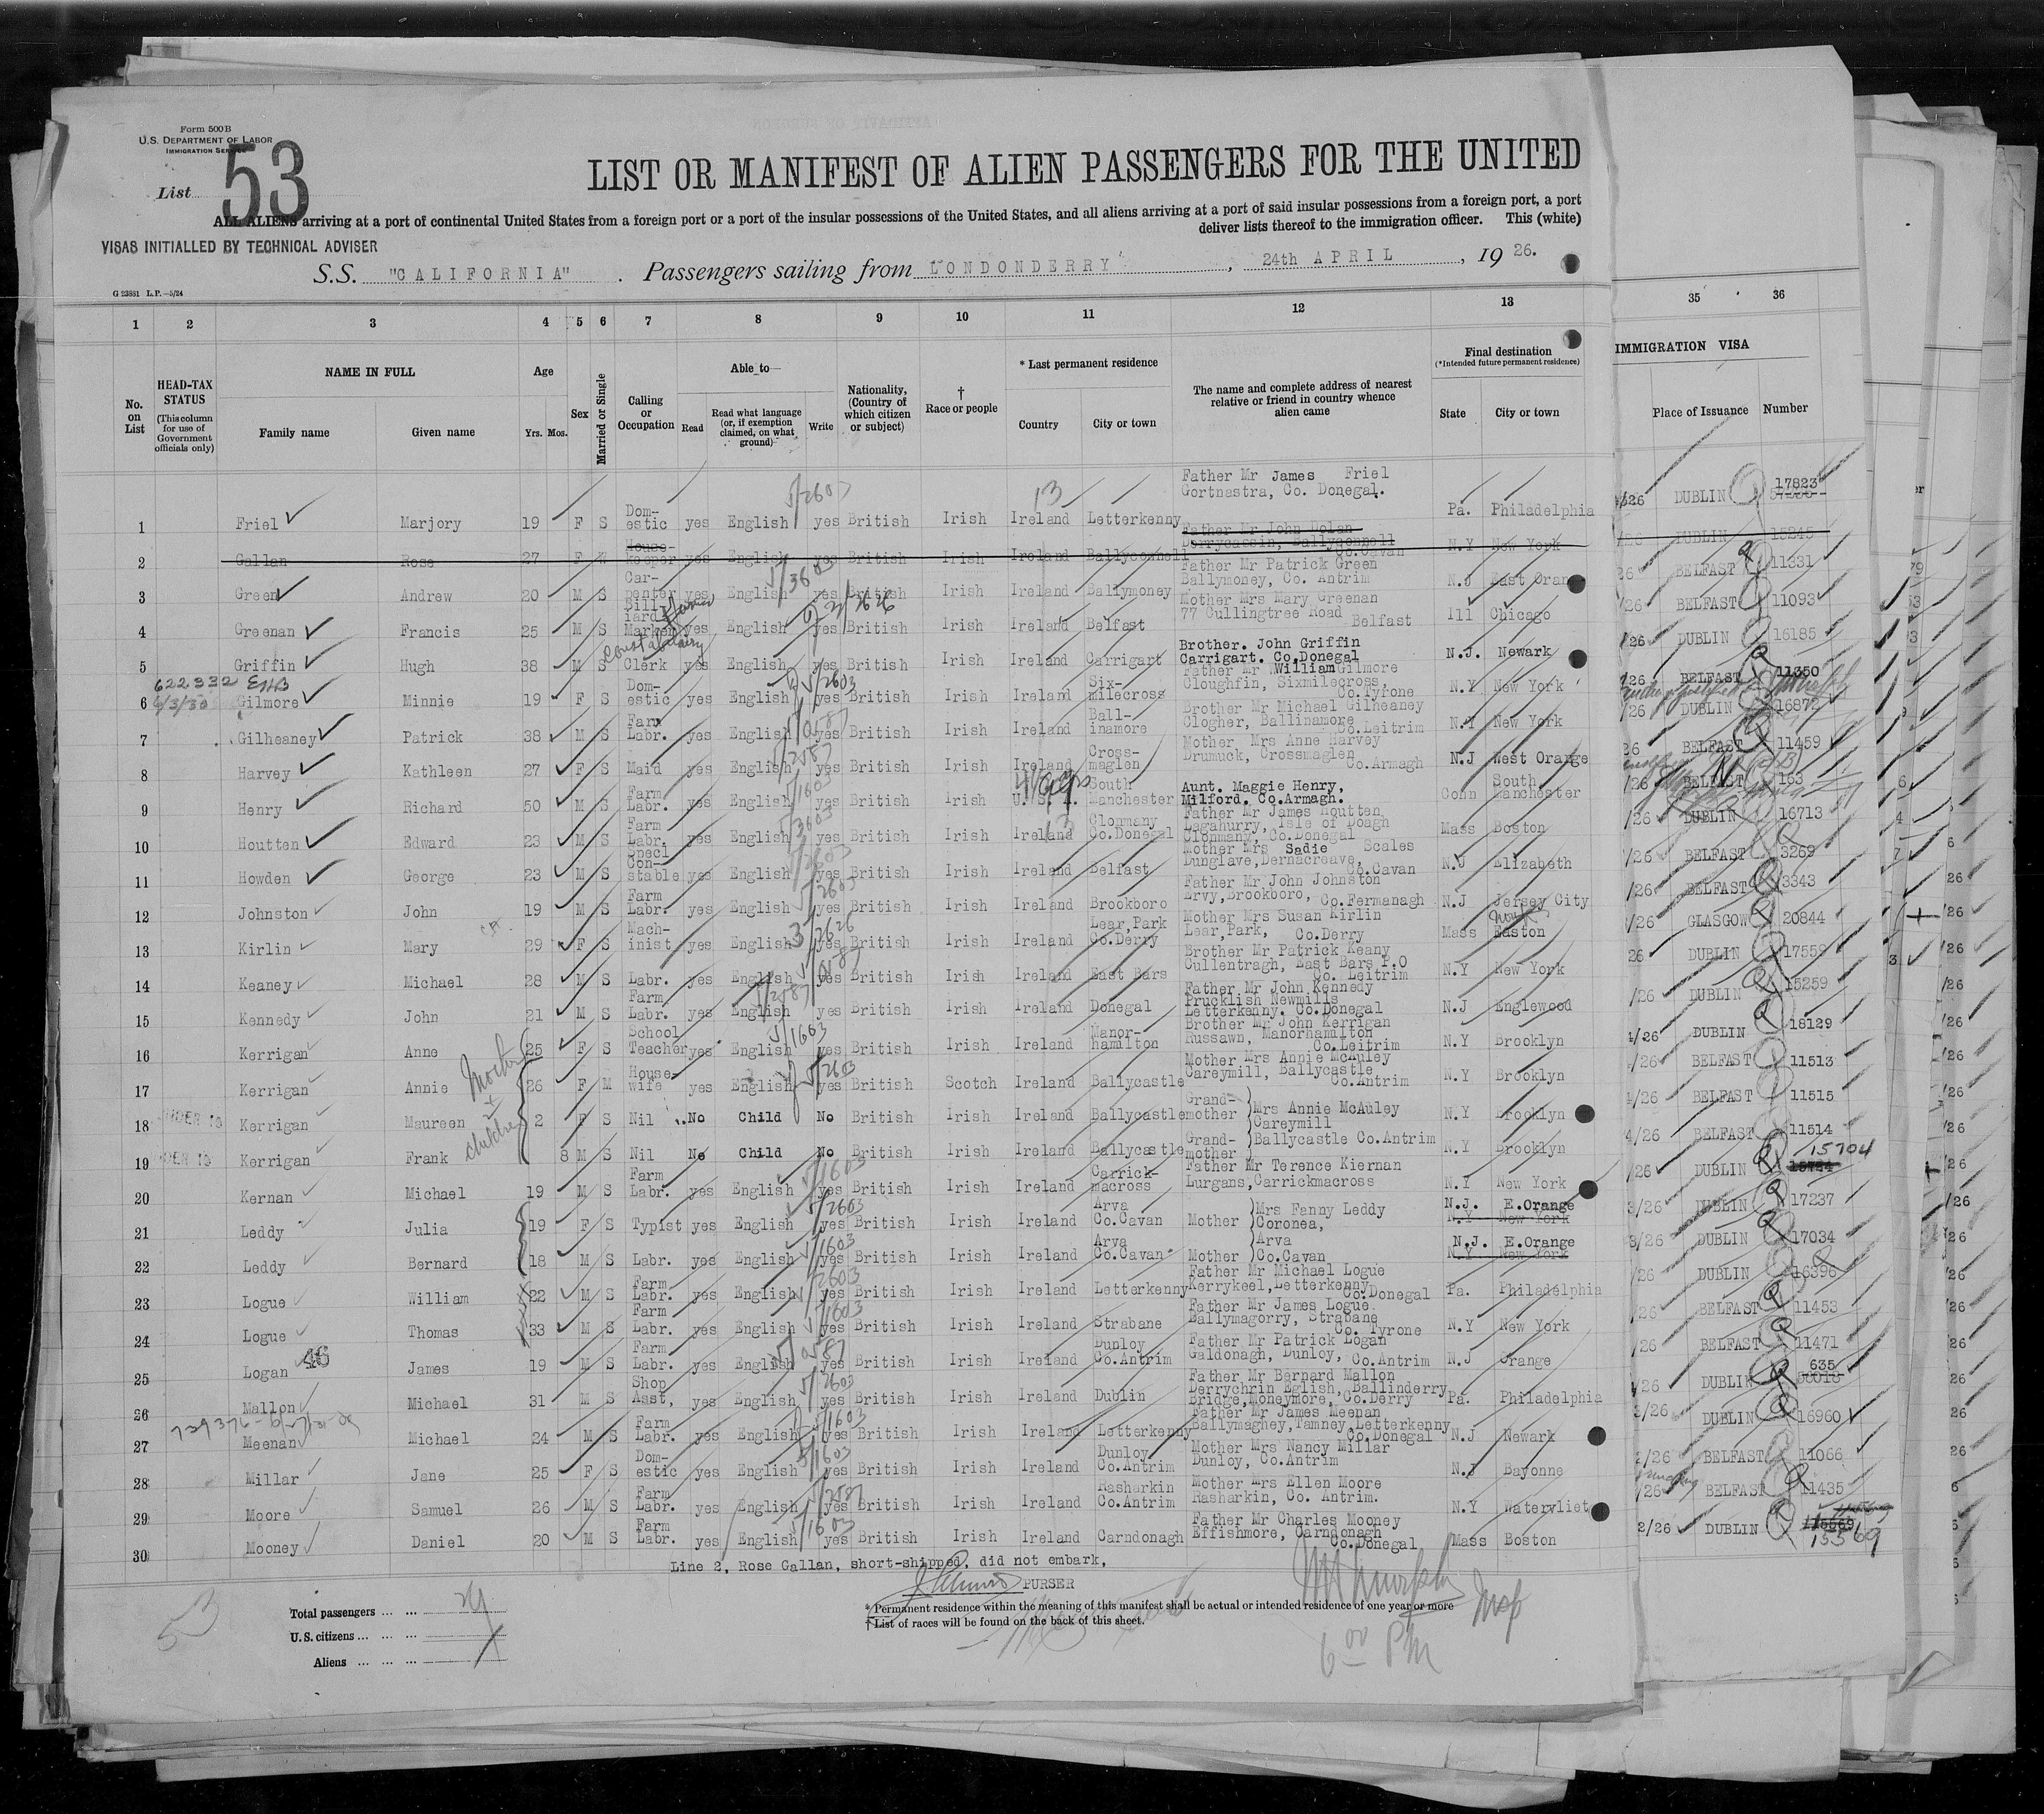 Form 500 B
U.S. DEPARTMENT OF LABOR
IMMIGRATION SERVICE
List 53
LIST OR MANIFEST OF ALIEN PASSENGERS FOR THE UNITED
ALL ALIENS arriving at a port of continental United States from a foreign port or a port of the insular possessions of the United States, and all aliens arriving at a port of said insular possessions from a foreign port, a port
deliver lists thereof to the immigration officer. This (white)
VISAS INITIALLED BY TECHNICAL ADVISER
S.S. "CALIFORNIA" . Passengers sailing from LONDONDERRY , 24th APRIL , 19 26.
G 23881 L.P.—5/24
1 2 3 4 5 6 7 8 9 10 11 12 13 35 36
No. on List
HEAD-TAX STATUS (This column for use of Government officials only)
NAME IN FULL
Family name Given name
Age Yrs. Mos.
Sex
Married or Single
Calling or Occupation
Able to—
Read Read what language (or, if exemption claimed, on what ground) Write
Nationality, (Country of which citizen or subject)
† Race or people
* Last permanent residence
Country City or town
The name and complete address of nearest relative or friend in country whence alien came
Final destination (*Intended future permanent residence)
State City or town
IMMIGRATION VISA
Place of Issuance Number
1 Friel Marjory 19 F S Domestic yes English yes British Irish Ireland Letterkenny Father Mr James Friel Gortnastra, Co. Donegal. Pa. Philadelphia DUBLIN 17823
2 Gallan Rose 27 F W House-keeper yes English yes British Irish Ireland Ballyconnell Father Mr John Dolan Derrycassin, Ballyconnell Co.Cavan N.Y New York DUBLIN 15245
3 Green Andrew 20 M S Car-penter yes English yes British Irish Ireland Ballymoney Father Mr Patrick Green Ballymoney, Co. Antrim N.J East Oran BELFAST 11331
4 Greenan Francis 25 M S Bill-iard Marker yes English yes British Irish Ireland Belfast Mother Mrs Mary Greenan 77 Cullingtree Road Belfast Ill Chicago BELFAST 11093
5 Griffin Hugh 38 M S Clerk yes English yes British Irish Ireland Carrigart Brother. John Griffin Carrigart. Co.Donegal N.J. Newark DUBLIN 16185
622332
6 Gilmore Minnie 19 F S Dom-estic yes English yes British Irish Ireland Six-milecross Father Mr William Gilmore Cloughfin, Sixmilecross, Co.Tyrone N.Y New York BELFAST 11350
7 Gilheaney Patrick 38 M S Farm Labr. yes English yes British Irish Ireland Ball-inamore Brother Mr Michael Gilheaney Clogher, Ballinamore Co.Leitrim N.Y New York DUBLIN 16872
8 Harvey Kathleen 27 F S Maid yes English yes British Irish Ireland Cross-maglen Mother Mrs Anne Harvey Drumuck, Crossmaglen Co.Armagh N.J West Orange BELFAST 11459
9 Henry Richard 50 M S Farm Labr. yes English yes British Irish U.S.A. South Manchester Aunt. Maggie Henry, Milford. Co.Armagh. Conn South Manchester BELFAST 163
10 Houtten Edward 23 M S Farm Labr. yes English yes British Irish Ireland Clonmany Co.Donegal Father Mr James Houtten Lagahurry, Isle of Doagh Clonmany, Co.Donegal Mass Boston DUBLIN 16713
11 Howden George 23 M S Specl Con-stable yes English yes British Irish Ireland Belfast Mother Mrs Sadie Scales Dunglave,Dernacreave, Co.Cavan N.J Elizabeth BELFAST 3269
12 Johnston John 19 M S Farm Labr. yes English yes British Irish Ireland Brookboro Father Mr John Johnston Ervy,Brookboro, Co.Fermanagh N.J Jersey City BELFAST 3343
13 Kirlin Mary 29 F S Mach-inist yes English yes British Irish Ireland Lear,Park Co.Derry Mother Mrs Susan Kirlin Lear,Park, Co.Derry Mass Easton GLASGOW 20844
14 Keaney Michael 28 M S Labr. yes English yes British Irish Ireland East Bars Brother Mr Patrick Keany Cullentragh, East Bars P.O Co. Leitrim N.Y New York DUBLIN 17559
15 Kennedy John 21 M S Farm Labr. yes English yes British Irish Ireland Donegal Father Mr John Kennedy Prucklish Newmills Letterkenny. Co.Donegal N.J Englewood DUBLIN 15259
16 Kerrigan Anne 25 F S School Teacher yes English yes British Irish Ireland Manor-hamilton Brother Mr John Kerrigan Russawn, Manorhamilton Co.Leitrim N.Y Brooklyn DUBLIN 18129
Mother & children
17 Kerrigan Annie 26 F M House-wife yes English yes British Scotch Ireland Ballycastle Mother Mrs Annie McAuley Careymill, Ballycastle Co.Antrim N.Y Brooklyn BELFAST 11513
18 Kerrigan Maureen 2 F S Nil No Child No British Irish Ireland Ballycastle Grand-mother Mrs Annie McAuley Careymill N.Y Brooklyn BELFAST 11515
19 Kerrigan Frank 8 M S Nil No Child No British Irish Ireland Ballycastle Grand-mother Ballycastle Co.Antrim N.Y Brooklyn BELFAST 11514
20 Kernan Michael 19 M S Farm Labr. yes English yes British Irish Ireland Carrick-macross Father Mr Terence Kiernan Lurgans,Carrickmacross N.Y New York DUBLIN 15724 15704
21 Leddy Julia 19 F S Typist yes English yes British Irish Ireland Arva Co.Cavan Mother Mrs Fanny Leddy Coronea, N.J. E.Orange N.Y New York DUBLIN 17237
22 Leddy Bernard 18 M S Labr. yes English yes British Irish Ireland Arva Co.Cavan Mother Arva Co.Cavan N.J. E.Orange N.Y New York DUBLIN 17034
23 Logue William 22 M S Farm Labr. yes English yes British Irish Ireland Letterkenny Father Mr Michael Logue Kerrykeel,Letterkenny Co.Donegal Pa. Philadelphia DUBLIN 16396
24 Logue Thomas 33 M S Farm Labr. yes English yes British Irish Ireland Strabane Father Mr James Logue Ballymagorry, Strabane Co. Tyrone N.Y New York BELFAST 11453
25 Logan 46 James 19 M S Farm Labr. yes English yes British Irish Ireland Dunloy Co.Antrim Father Mr Patrick Logan Galdonagh, Dunloy, Co.Antrim N.J Orange BELFAST 11471
26 Mallon Michael 31 M S Shop Asst, yes English yes British Irish Ireland Dublin Father Mr Bernard Mallon Derrychrin Eglish, Ballinderry Bridge,Moneymore, Co.Derry Pa. Philadelphia DUBLIN 635
27 Meenan Michael 24 M S Farm Labr. yes English yes British Irish Ireland Letterkenny Father Mr James Meenan Ballymaghey,Tamney,Letterkenny Co.Donegal N.J Newark DUBLIN 16960
28 Millar Jane 25 F S Dom-estic yes English yes British Irish Ireland Dunloy Co.Antrim Mother Mrs Nancy Millar Dunloy, Co.Antrim N.J Bayonne BELFAST 11066
29 Moore Samuel 26 M S Farm Labr. yes English yes British Irish Ireland Rasharkin Co.Antrim Mother Mrs Ellen Moore Rasharkin, Co. Antrim. N.Y Watervliet BELFAST 11435
30 Mooney Daniel 20 M S Farm Labr. yes English yes British Irish Ireland Carndonagh Father Mr Charles Mooney Effishmore, Carndonagh Co.Donegal Mass Boston DUBLIN 15569
Line 2, Rose Gallan, short-shipped, did not embark,
PURSER
53
Total passengers ... ... 29
U.S. citizens ... ... ...
Aliens ... ... ...
* Permanent residence within the meaning of this manifest shall be actual or intended residence of one year or more
† List of races will be found on the back of this sheet.
Insp
6 00 PM